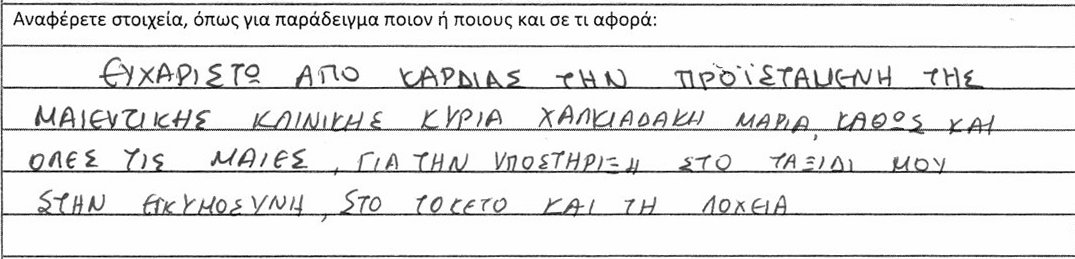 Αναφέρετε στοιχεία, όπως για παράδειγμα ποιον ή ποιους και σε τι αφορά:
ΕΥΧΑΡΙΣΤΩ ΑΠΟ ΚΑΡΔΙΑΣ ΤΗΝ ΠΡΟΪΣΤΑΜΕΝΗ ΤΗΣ
ΜΑΙΕΥΤΙΚΗΣ ΚΛΙΝΙΚΗΣ ΚΥΡΙΑ ΧΑΛΚΙΑΔΑΚΗ ΜΑΡΙΑ, ΚΑΘΩΣ ΚΑΙ
ΟΛΕΣ ΤΙΣ ΜΑΙΕΣ, ΓΙΑ ΤΗΝ ΥΠΟΣΤΗΡΙΞΗ ΣΤΟ ΤΑΞΙΔΙ ΜΟΥ
ΣΤΗΝ ΕΓΚΥΜΟΣΥΝΗ, ΣΤΟ ΤΟΚΕΤΟ ΚΑΙ ΤΗ ΛΟΧΕΙΑ